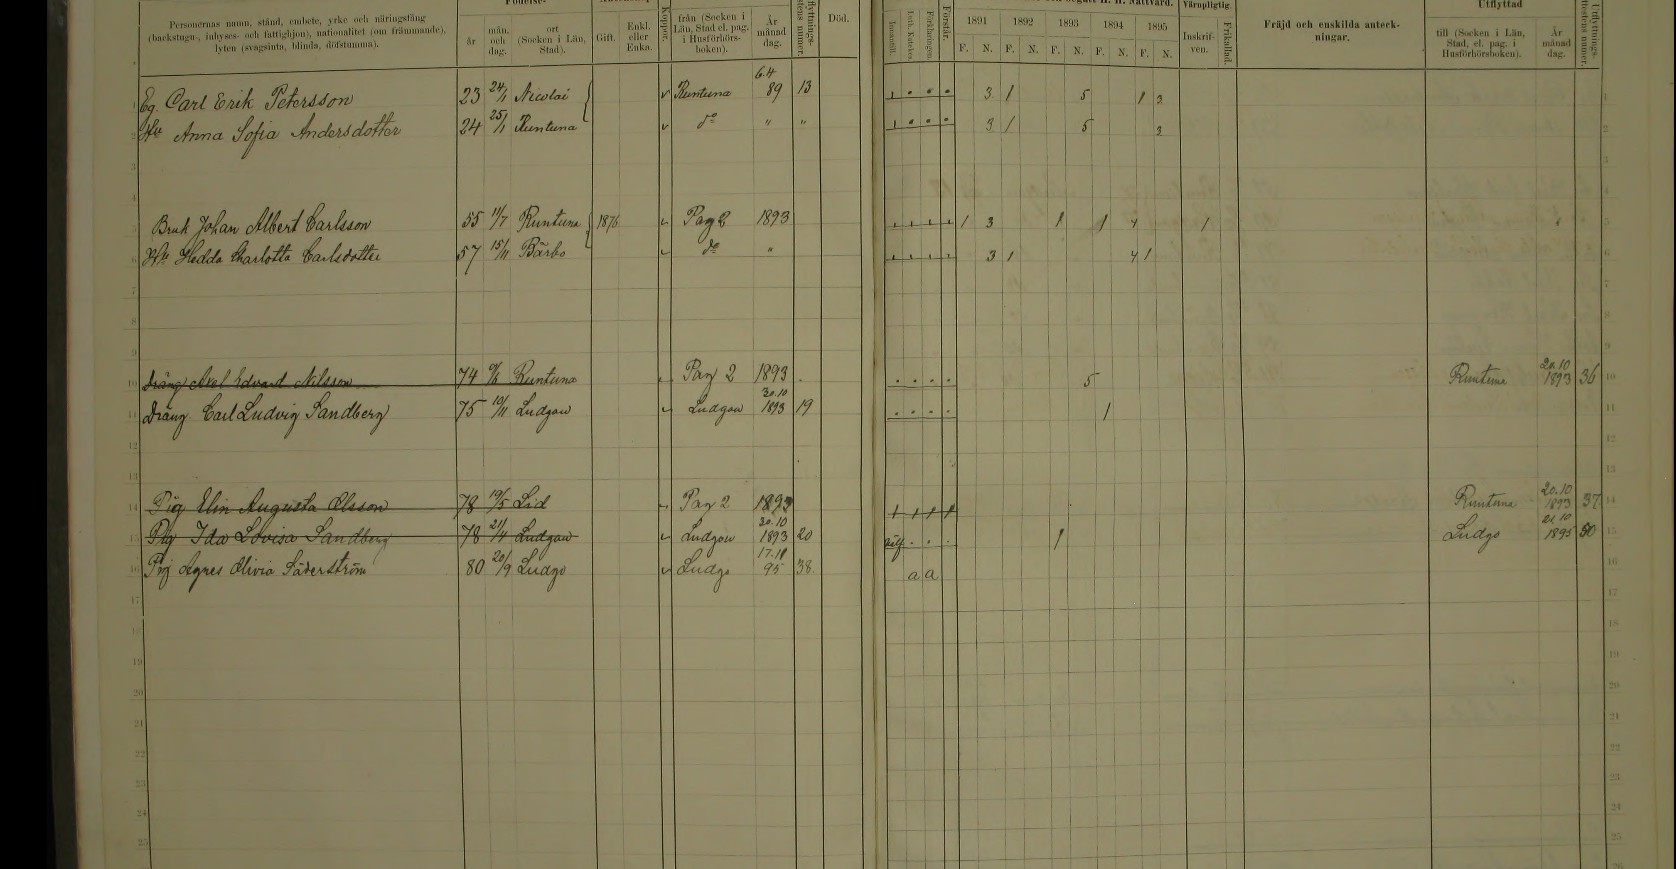 Personernas namn, stånd, embete, yrke och näringsfång
(backstugu-, inhyses- och fattighjon), nationalitet (om främmande),
lyten (svagsinta, blinda, döfstumma).
Födelse-
år
mån. och dag.
ort (Socken i Län, Stad).
Gift.
Enkl. eller Enka.
Koppor.
från (Socken i Län, Stad el. pag. i Husförhörs-boken).
År månad dag.
Död.
Innantill.
Luth. Kateches
Förklaringen
Förstår.
H. H. Nattvard.
1891 1892 1893 1894 1895
F. N. F. N. F. N. F. N. F. N.
Värnpligtig.
Inskrif-ven.
Frikallad.
Fräjd och enskilda anteck-ningar.
Utflyttad
till (Socken i Län, Stad, el. pag. i Husförhörsboken).
År månad dag.
Utflyttnings-
1 Eg. Carl Erik Petersson 23 24/1 Nicolai v Runtuna 6.4 89 13 3 1 5 1 3 1
2 Hu Anna Sofia Andersdotter 24 25/1 Runtuna v do " " 3 1 5 3 2
3 3
4 4
5 Bruk Johan Albert Carlsson 55 11/7 Runtuna 1876 Pag 2 1893 1 3 1 1 4 1 5
6 Hu Hedda Charlotta Carlsdotter 57 15/11 Bärbo do " 3 1 4 1 6
7 7
8 8
9 9
10 Dräng Axel Edvard Nilsson 74 Runtuna Pag 2 1893 5 Runtuna 20.10 1893 36 10
11 Dräng Carl Ludvig Sandberg 75 10/11 Ludgow Ludgow 20.10 1893 19 1 11
12 12
13 13
14 Pig Elin Augusta Olsson 78 19/5 Lid Pag 2 1893 Runtuna 20.10 1893 37 14
15 Pig Ida Lovisa Sandberg 78 21/4 Ludgow Ludgow 20.10 1893 20 1 Ludgo 1895 50 15
16 Pig Agnes Olivia Söderström 80 20/9 Ludgo v Ludgo 95 38 a a 16
17 17
18 18
19 19
20 20
21 21
22 22
23 23
24 24
25 25
26